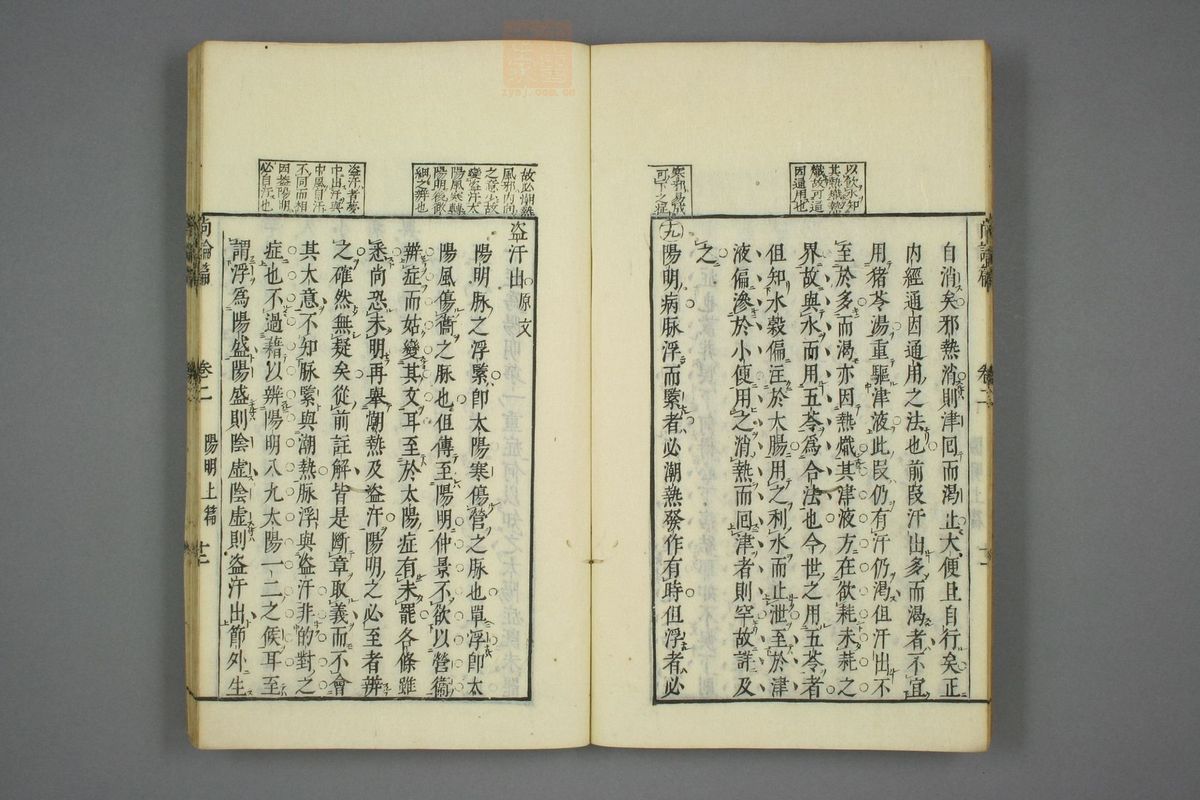 以飲水知
其熱熾熱
熾故可這
因通用也
自消矣邪熱消則津囘而渴止大便且自行矣正
內經通因通用之法也前段汗出多而渴者不宜
用猪苓湯重驅津液此段仍有汗仍渴但汗出不
至於多而渴亦因熱熾其津液方在欲耗未耗之
界故與水而用五苓爲合法也今世之用五苓者
但知水穀偏注於大腸用之利水而止泄至於津
液偏滲於小便用之消熱而囘津者則罕故詳及
之
寒邪易成
可下之症
九
陽明病脉浮而緊者必潮熱發作有時但浮者必
尚論篇 卷二 陽明上篇
故必潮熱
風邪內向
之意也故
變盜汗太
陽風寒轉
陽明後微
細之辨也
盜汗出原文
陽明脉之浮緊卽太陽寒傷營之脉也單浮卽太
陽風傷衞之脉也但傳至陽明仲景不欲以營衞
辨症而姑變其文耳至於太陽症有未罷各條雖
悉尚恐未明再舉潮熱及盜汗陽明之必至者辨
之確然無疑矣從前註解皆是斷章取義而不會
其大意不知脉緊與潮熱脉浮與盜汗非的對之
症也不過藉以辨陽明八九太陽一二之候耳至
謂浮爲陽盛陽盛則陰虛陰虛則盜汗出節外生
盜汗者夢
中出汗與
中風自汗
不同而相
因葢陽明
必自汗也
尚論篇 卷二 陽明上篇